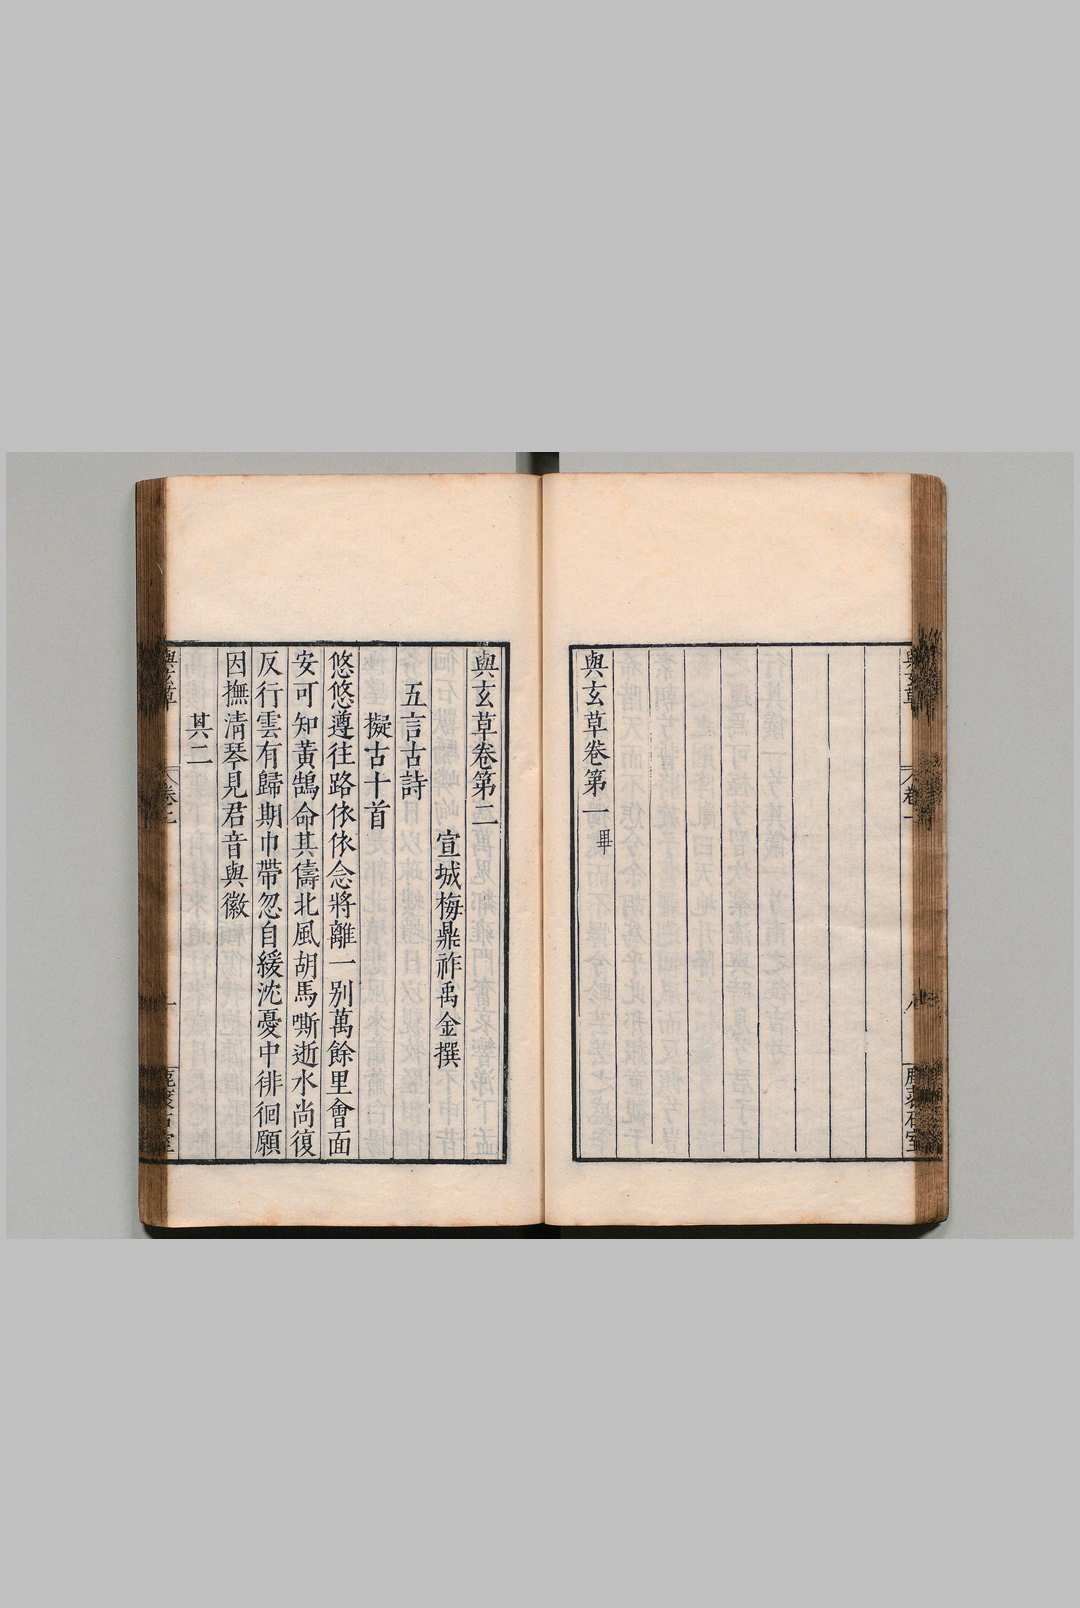 與玄草卷第一 畢
與玄草
卷一
八
鹿裘石室
與玄草卷第二
宣城梅鼎祚禹金撰
五言古詩
擬古十首
悠悠遵往路依依念將離一別萬餘里會面
安可知黃鵠命其儔北風胡馬嘶逝水尚復
反行雲有歸期巾帶忽自緩沈憂中徘徊願
因撫清琴見君音與徽
其二
與玄草
卷二
一
鹿裘石室